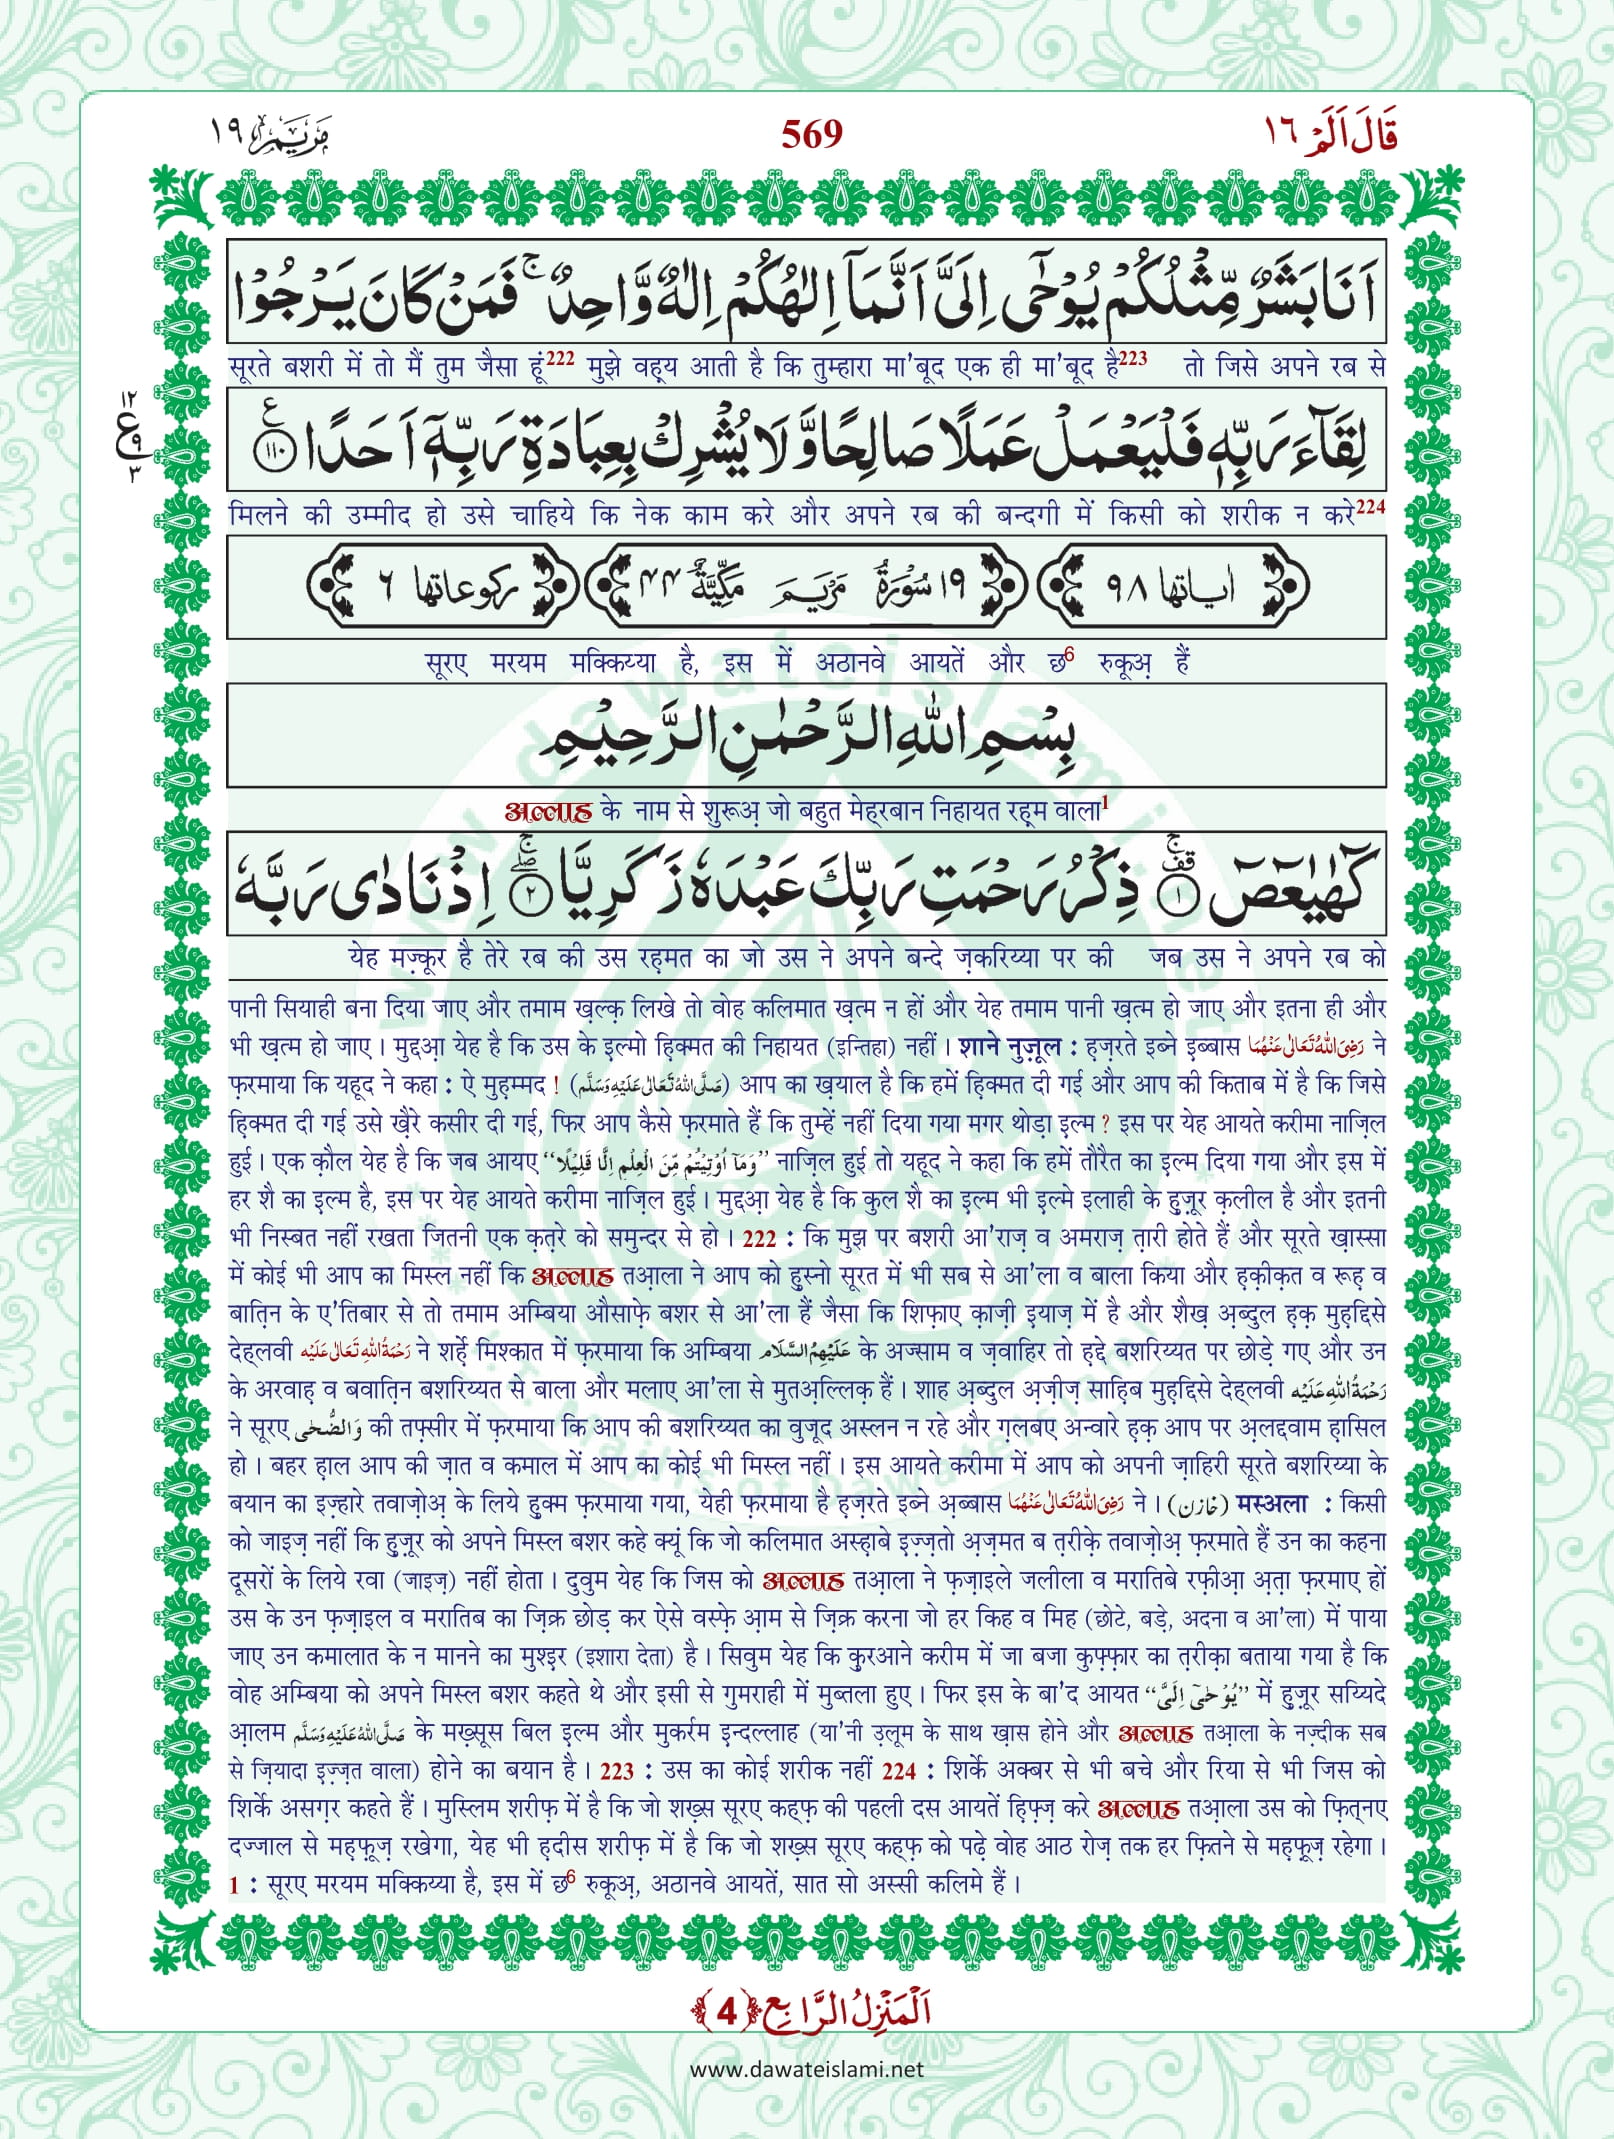 مَرْيَم ١٩
569
قَالَ اَلَمْ ١٦
اَنَا بَشَرٌ مِّثْلُكُمْ يُوْحٰۤى اِلَیَّ اَنَّمَاۤ اِلٰهُكُمْ اِلٰهٌ وَّاحِدٌ ۚ فَمَنْ كَانَ یَرْجُوْا
सूरते बशरी में तो मैं तुम जैसा हूं222 मुझे वह़्‌य आती है कि तुम्हारा मा'बूद एक ही मा'बूद है223 तो जिसे अपने रब से
١٢
ع ٩
٣
لِقَآءَ رَبِّهٖ فَلْیَعْمَلْ عَمَلًا صَالِحًا وَّ لَا یُشْرِكْ بِعِبَادَةِ رَبِّهٖۤ اَحَدًا ﴿١١٠﴾ ع
मिलने की उम्मीद हो उसे चाहिये कि नेक काम करे और अपने रब की बन्दगी में किसी को शरीक न करे224
اٰیاتها ٩٨ ١٩ سُوْرَةُ مَرْیَمَ مَكِّیَّةٌ ٤٤ ركوعاتها ٦
सूरए मरयम मक्किय्या है, इस में अठानवे आयतें और छ6 रुकूअ़ हैं
بِسْمِ اللهِ الرَّحْمٰنِ الرَّحِیْمِ
अल्लाह के नाम से शुरूअ़ जो बहुत मेह्‌रबान निहायत रह़्म वाला1
كٓهٰیٰعٓصٓ ﴿١﴾ ذِكْرُ رَحْمَتِ رَبِّكَ عَبْدَهٗ زَكَرِیَّا ﴿٢﴾ اِذْ نَادٰى رَبَّهٗ
येह मज़्कूर है तेरे रब की उस रह़मत का जो उस ने अपने बन्दे ज़करिय्या पर की जब उस ने अपने रब को
पानी सियाही बना दिया जाए और तमाम ख़ल्क़ लिखे तो वोह कलिमात ख़त्म न हों और येह तमाम पानी ख़त्म हो जाए और इतना ही और
भी ख़त्म हो जाए। मुद्दआ़ येह है कि उस के इल्मो ह़िक्मत की निहायत (इन्तिहा) नहीं। शाने नुज़ूल : ह़ज़रते इब्ने इ़ब्बास رَضِیَ اللهُ تَعَالٰی عَنْهُمَا ने
फ़रमाया कि यहूद ने कहा : ऐ मुह़म्मद ! (صَلَّی اللهُ تَعَالٰی عَلَیْهِ وَسَلَّم) आप का ख़याल है कि हमें ह़िक्मत दी गई और आप की किताब में है कि जिसे
ह़िक्मत दी गई उसे ख़ैरे कसीर दी गई, फिर आप कैसे फ़रमाते हैं कि तुम्हें नहीं दिया गया मगर थोड़ा इ़ल्म ? इस पर येह आयते करीमा नाज़िल
हुई। एक क़ौल येह है कि जब आयए ”وَمَاۤ اُوْتِیْتُمْ مِّنَ الْعِلْمِ اِلَّا قَلِیْلًا“ नाज़िल हुई तो यहूद ने कहा कि हमें तौरैत का इ़ल्म दिया गया और इस में
हर शै का इ़ल्म है, इस पर येह आयते करीमा नाज़िल हुई। मुद्दआ़ येह है कि कुल शै का इ़ल्म भी इ़ल्मे इलाही के हु़ज़ूर क़लील है और इतनी
भी निस्बत नहीं रखता जितनी एक क़त़रे को समुन्दर से हो। 222 : कि मुझ पर बशरी आ'राज़ व अमराज़ त़ारी होते हैं और सूरते ख़ास्सा
में कोई भी आप का मिस्ल नहीं कि अल्लाह तआ़ला ने आप को हु़स्नो सूरत में भी सब से आ'ला व बाला किया और ह़क़ीक़त व रूह़ व
बात़िन के ए'तिबार से तो तमाम अम्बिया औसाफ़े बशर से आ'ला हैं जैसा कि शिफ़ाए क़ाज़ी इयाज़ में है और शैख़ अ़ब्दुल ह़क़ मुह़द्दिसे
देह्‌लवी رَحْمَةُ اللهِ تَعَالٰی عَلَیْه ने शर्ह़े मिश्कात में फ़रमाया कि अम्बिया عَلَیْهِمُ السَّلَام के अज्साम व ज़वाहिर तो ह़द्दे बशरिय्यत पर छोड़े गए और उन
के अरवाह़ व बवात़िन बशरिय्यत से बाला और मलाए आ'ला से मुतअ़ल्लिक़ हैं। शाह अ़ब्दुल अ़ज़ीज़ साह़िब मुह़द्दिसे देह्‌लवी رَحْمَةُ اللهِ عَلَیْه
ने सूरए وَالضُّحٰی की तफ़्सीर में फ़रमाया कि आप की बशरिय्यत का वुजूद अस्लन न रहे और ग़लबए अन्वारे ह़क़ आप पर अ़लद्दवाम ह़ासिल
हो। बहर ह़ाल आप की ज़ात व कमाल में आप का कोई भी मिस्ल नहीं। इस आयते करीमा में आप को अपनी ज़ाहिरी सूरते बशरिय्या के
बयान का इज़्हारे तवाज़ोअ़ के लिये हु़क्म फ़रमाया गया, येही फ़रमाया है ह़ज़रते इब्ने अ़ब्बास رَضِیَ اللهُ تَعَالٰی عَنْهُمَا ने। (خازن) मस्अला : किसी
को जाइज़ नहीं कि हु़ज़ूर को अपने मिस्ल बशर कहे क्यूं कि जो कलिमात अस्ह़ाबे इ़ज़्ज़तो अ़ज़मत ब त़रीक़े तवाज़ोअ़ फ़रमाते हैं उन का कहना
दूसरों के लिये रवा (जाइज़) नहीं होता। दुवुम येह कि जिस को अल्लाह तआ़ला ने फ़ज़ाइले जलीला व मरातिबे रफ़ीआ़ अ़त़ा फ़रमाए हों
उस के उन फ़ज़ाइल व मरातिब का ज़िक्र छोड़ कर ऐसे वस्फ़े आ़म से ज़िक्र करना जो हर किह व मिह (छोटे, बड़े, अदना व आ'ला) में पाया
जाए उन कमालात के न मानने का मुश्इर (इशारा देता) है। सिवुम येह कि क़ुरआने करीम में जा बजा कुफ़्फ़ार का त़रीक़ा बताया गया है कि
वोह अम्बिया को अपने मिस्ल बशर कहते थे और इसी से गुमराही में मुब्तला हुए। फिर इस के बा'द आयत ”یُوْحٰۤی اِلَیَّ“ में हु़ज़ूर सय्यिदे
आ़लम صَلَّی اللهُ عَلَیْهِ وَسَلَّم के मख़्सूस बिल इ़ल्म और मुकर्रम इ़न्दल्लाह (या'नी उ़लूम के साथ ख़ास होने और अल्लाह तआ़ला के नज़्दीक सब
से ज़ियादा इ़ज़्ज़त वाला) होने का बयान है। 223 : उस का कोई शरीक नहीं 224 : शिर्के अक्बर से भी बचे और रिया से भी जिस को
शिर्के असग़र कहते हैं। मुस्लिम शरीफ़ में है कि जो शख़्स सूरए कह्‌फ़ की पहली दस आयतें ह़िफ़्ज़ करे अल्लाह तआ़ला उस को फ़ित्‌नए
दज्जाल से मह़्फ़ूज़ रखेगा, येह भी ह़दीस शरीफ़ में है कि जो शख़्स सूरए कह्‌फ़ को पढ़े वोह आठ रोज़ तक हर फ़ितने से मह़्फ़ूज़ रहेगा।
1 : सूरए मरयम मक्किय्या है, इस में छ6 रुकूअ़, अठानवे आयतें, सात सो अस्सी कलिमे हैं।
اَلْمَنْزِلُ الرَّابِعُ ﴿4﴾
www.dawateislami.net